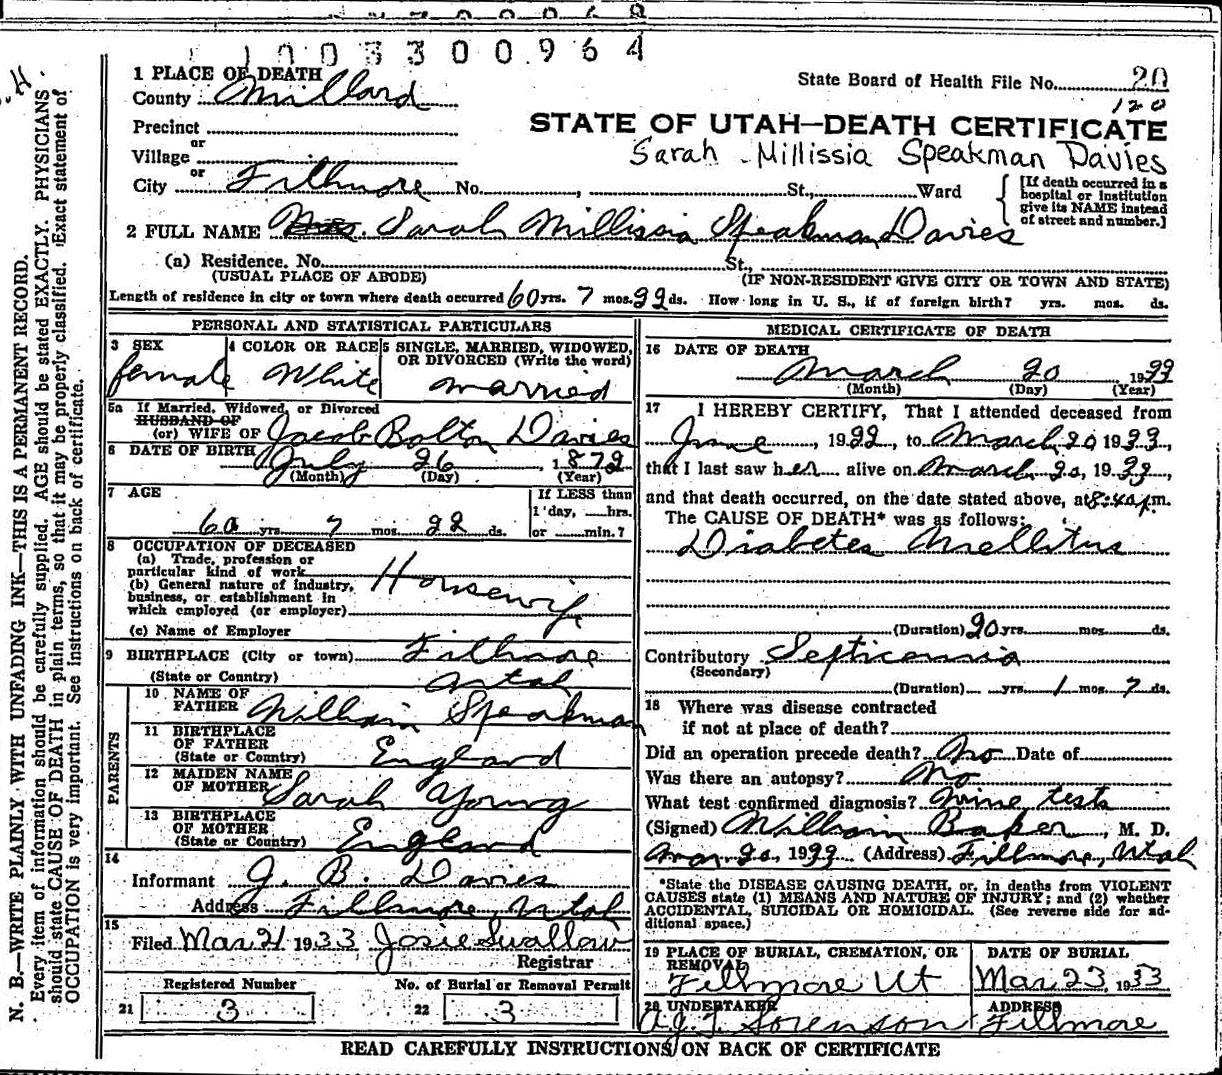 1 1 0 0 3 3 0 0 9 6 4
1 PLACE OF DEATH
County Millard
State Board of Health File No. 20
120
Precinct
or
Village
or
City Fillmore No. , St., Ward
STATE OF UTAH—DEATH CERTIFICATE
Sarah Millissia Speakman Davies
[If death occurred in a
hospital or institution
give its NAME instead
of street and number.]
2 FULL NAME Mrs. Sarah Millissia Speakman Davies
(a) Residence. No. St.,
(USUAL PLACE OF ABODE) (IF NON-RESIDENT GIVE CITY OR TOWN AND STATE)
Length of residence in city or town where death occurred 60 yrs. 7 mos. 22 ds. How long in U. S., if of foreign birth? yrs. mos. ds.
PERSONAL AND STATISTICAL PARTICULARS
3 SEX
female
4 COLOR OR RACE
White
5 SINGLE, MARRIED, WIDOWED,
OR DIVORCED (Write the word)
married
5a If Married, Widowed, or Divorced
HUSBAND OF
(or) WIFE OF Jacob Bolton Davies
6 DATE OF BIRTH July 26, 1872
(Month) (Day) (Year)
7 AGE
60 yrs. 7 mos. 22 ds.
If LESS than
1 day, hrs.
or min.?
8 OCCUPATION OF DECEASED
(a) Trade, profession or
particular kind of work
(b) General nature of industry,
business, or establishment in
which employed (or employer)
Housewife
(c) Name of Employer
9 BIRTHPLACE (City or town) Fillmore
(State or Country) Utah
PARENTS
10 NAME OF
FATHER William Speakman
11 BIRTHPLACE
OF FATHER
(State or Country) England
12 MAIDEN NAME
OF MOTHER Sarah Young
13 BIRTHPLACE
OF MOTHER
(State or Country) England
14
Informant J. B. Davies
Address Fillmore, Utah
15
Filed Mar 21 1933 Josie Swallow
Registrar
Registered Number
21 3
No. of Burial or Removal Permit
22 3
MEDICAL CERTIFICATE OF DEATH
16 DATE OF DEATH
March 20 1933
(Month) (Day) (Year)
17 I HEREBY CERTIFY, That I attended deceased from
June, 1922, to March 20 1933,
that I last saw her alive on March 20, 1933,
and that death occurred, on the date stated above, at 8:40 p.m.
The CAUSE OF DEATH* was as follows:
Diabetes Mellitus
(Duration) 20 yrs. mos. ds.
Contributory Septicemia
(Secondary)
(Duration) yrs. 1 mos. 7 ds.
18 Where was disease contracted
if not at place of death?
Did an operation precede death? No Date of
Was there an autopsy? No
What test confirmed diagnosis? Urine tests
(Signed) William Baker, M. D.
Mar. 20, 1933 (Address) Fillmore, Utah
*State the DISEASE CAUSING DEATH, or, in deaths from VIOLENT
CAUSES state (1) MEANS AND NATURE OF INJURY; and (2) whether
ACCIDENTAL, SUICIDAL OR HOMICIDAL. (See reverse side for ad-
ditional space.)
19 PLACE OF BURIAL, CREMATION, OR
REMOVAL
Fillmore Ut
DATE OF BURIAL
Mar 23, 1933
20 UNDERTAKER
Sorenson
ADDRESS
Fillmore
READ CAREFULLY INSTRUCTIONS ON BACK OF CERTIFICATE
N. B.—WRITE PLAINLY WITH UNFADING INK—THIS IS A PERMANENT RECORD.
Every item of information should be carefully supplied. AGE should be stated EXACTLY. PHYSICIANS
should state CAUSE OF DEATH in plain terms, so that it may be properly classified. Exact statement of
OCCUPATION is very important. See instructions on back of certificate.